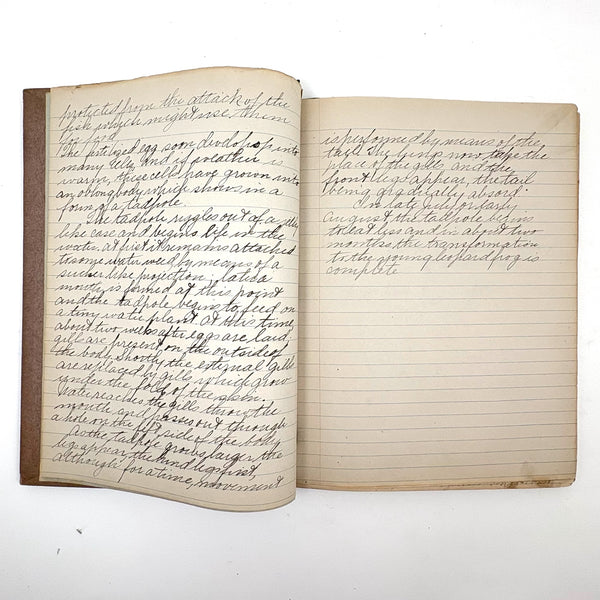 protected from the attack of the
fish which might use them
for food.
The fertilized egg soon develops into
many cells, and if weather is
warm, these cells have grown into
an oblong body which shows in a
form of a tadpole.
The tadpole riggles out of a jelly
like case and begins life in the
water, at first it remains attached
to some water weed by means of a
sucker like projection; later a
mouth is formed at this point
and the tadpole begins to feed on
a tiny water plant at this time,
about two weeks after eggs are laid,
gills are present on the outside of
the body. Shortly the external gills
are replaced by gills which grow
under the fold of the skin.
Water reaches the gills through the
mouth and passes out through
a hole on the left side of the body.
As the tadpole grows larger the
legs appear, the hind legs first,
although for a time, movement
is performed by means of the
tail. The lungs now take the
place of the gills and the
front legs appear, the tail
being gradually absorb.
In late July or early
August the tadpole begins
to eat less and in about two
months the transformation
to the young leopard frog is
complete